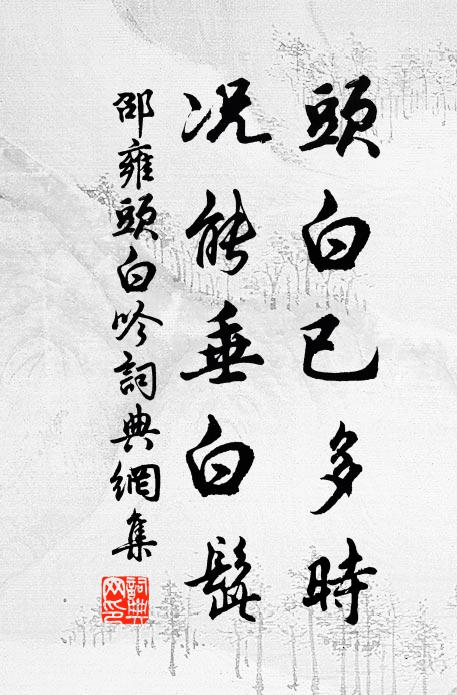 頭白已多時
況能垂白髭
邵雍頭白吟詞典網集